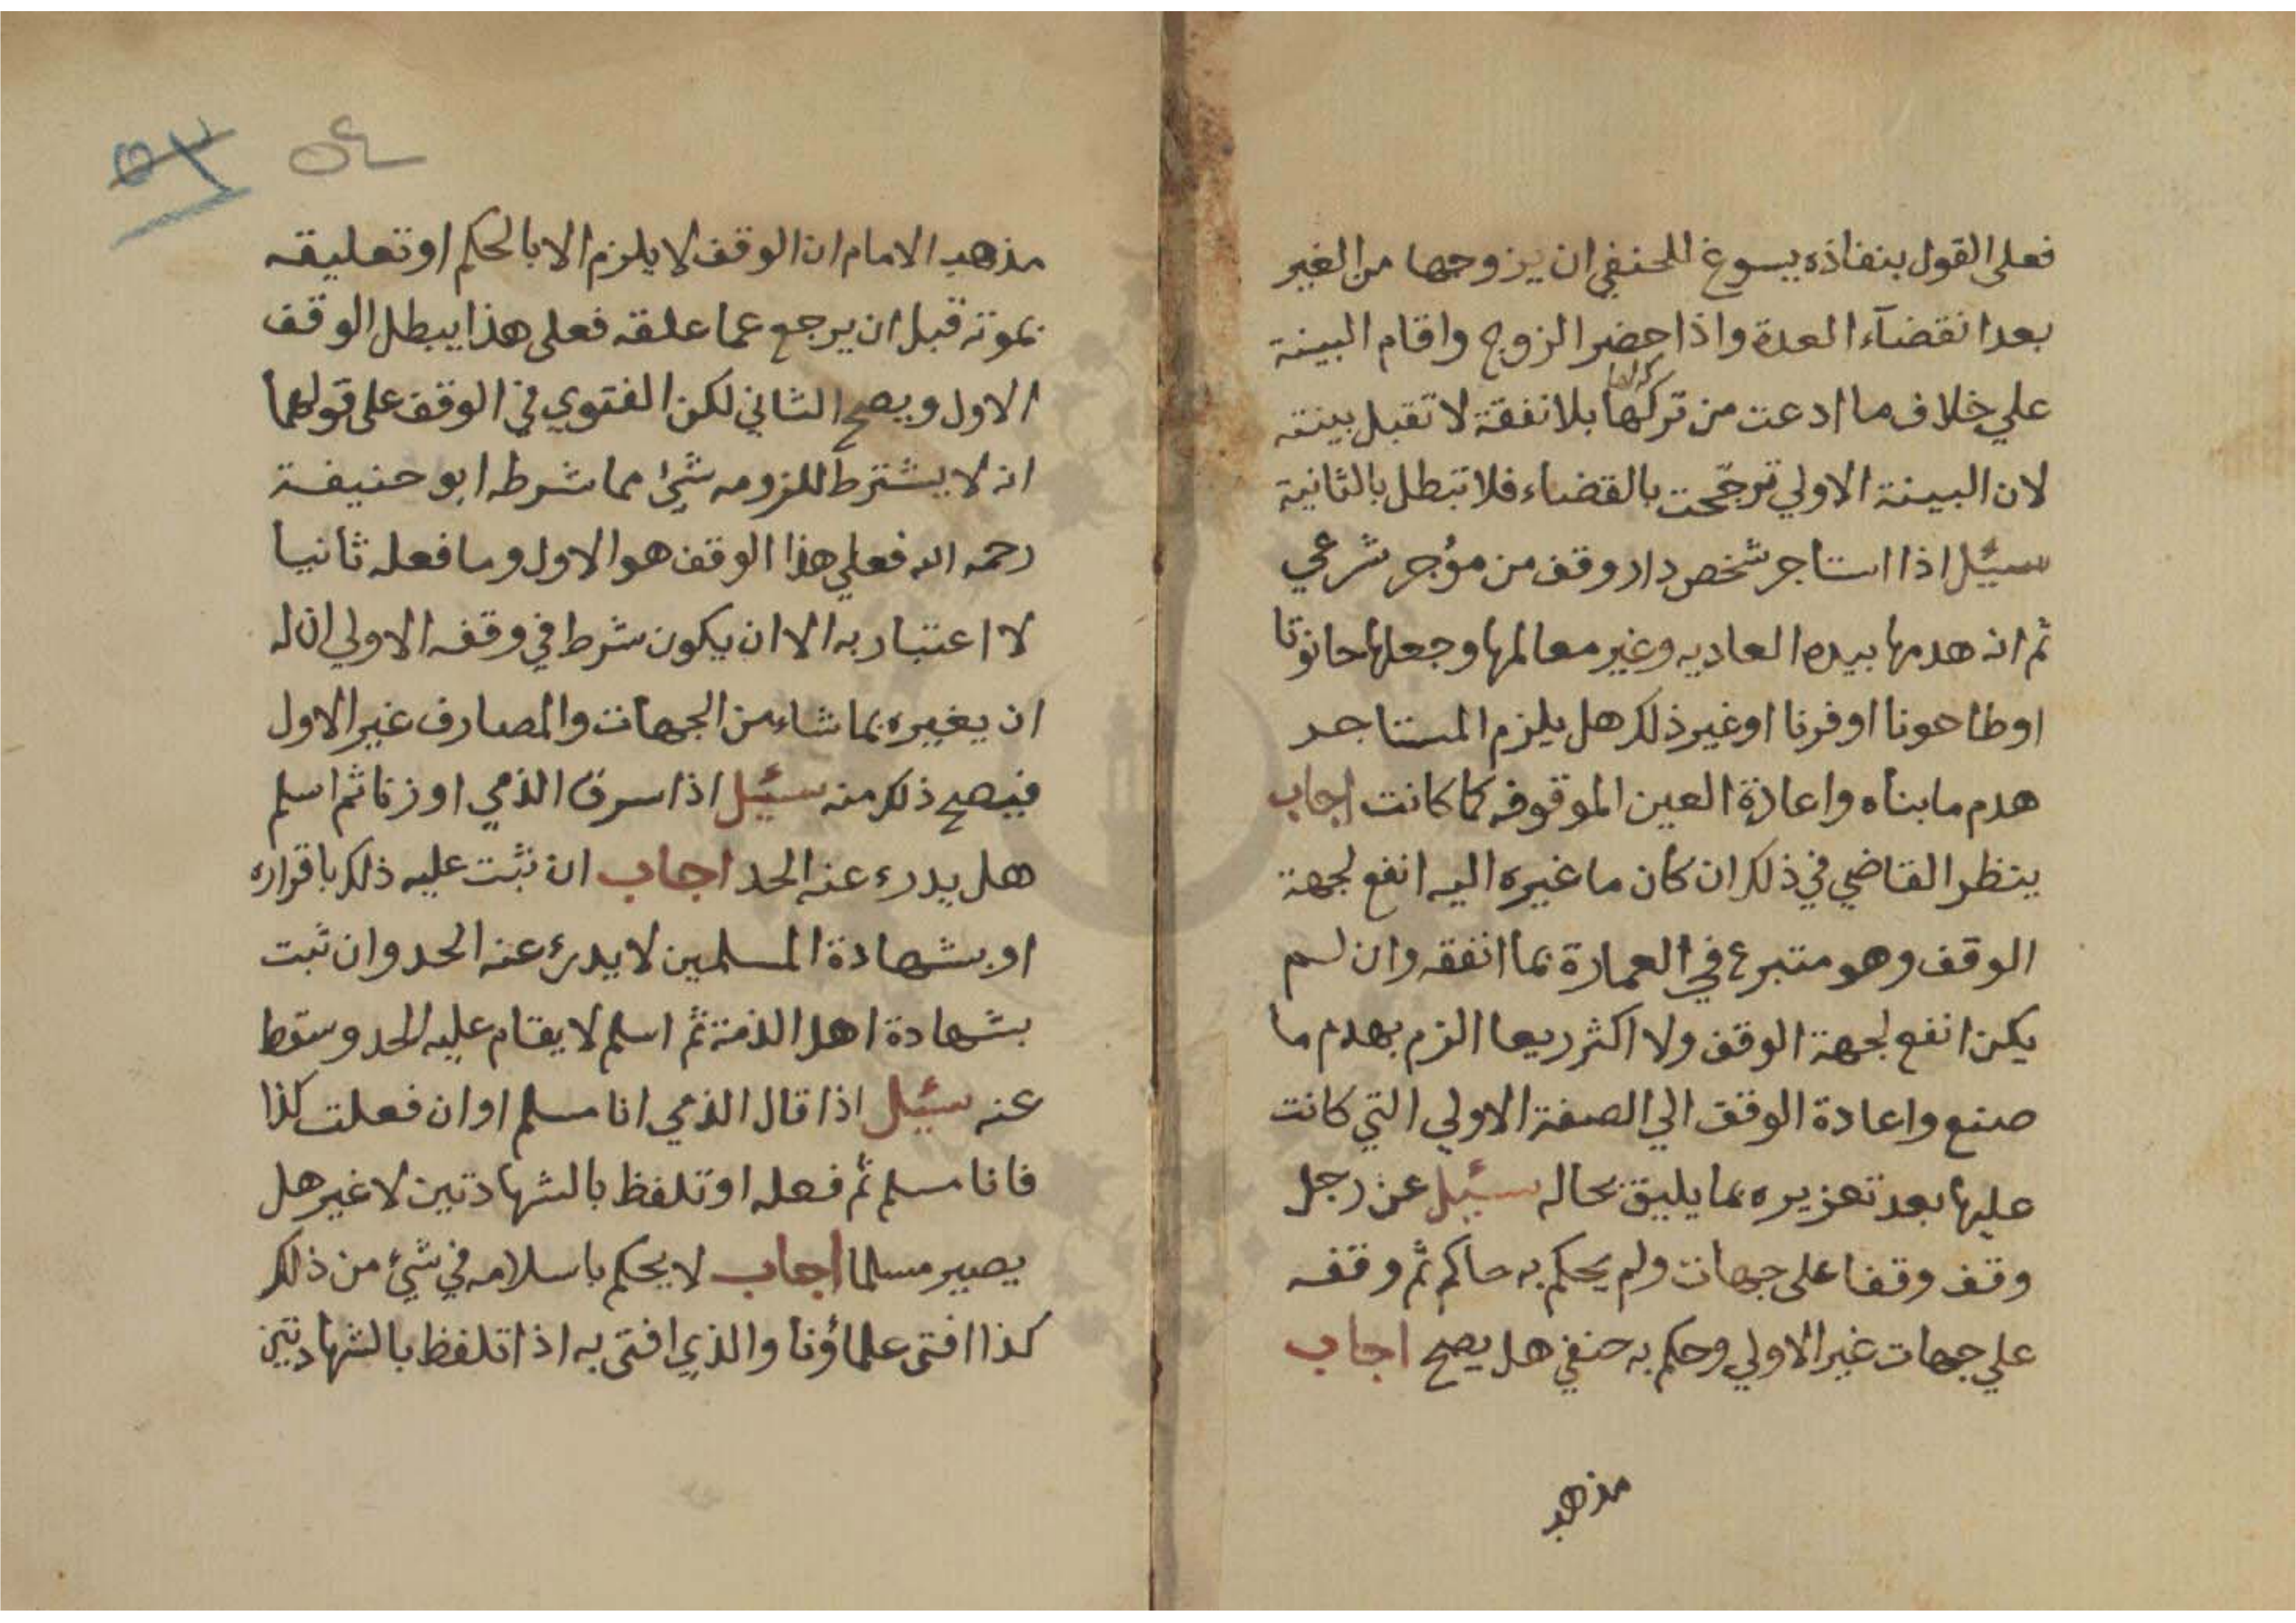 فعلى القول بنفاذه يسوغ للحنفي ان يزوجها من الغير
بعد انقضآء العدة واذا حضر الزوج واقام البينة
علي خلاف ما ادعت من تركها بلا نفقة لا تقبل بينته
لان البينة الاولي ترجّحت بالقضاء فلا تبطل بالثانية
سئيل اذا استاجر شخص دار وقف من مؤجر شرعي
ثم انه هدمها بيده العاديه وغير معالمها وجعلها حانوتا
اوطاحونا او فرنا او غير ذلك هل يلزم المستاجر
هدم ما بناه واعادة العين الموقوفه كما كانت اجاب
ينظر القاضي في ذلك ان كان ما غيره اليه انفع لجهة
الوقف وهو متبرع في العمارة بما انفقه وان لم
يكن انفع لجهة الوقف ولا اكثر ريعا الزم بهدم ما
صنع واعادة الوقف الي الصفة الاولي التي كانت
عليها بعد تعزيره بما يليق بحاله سئيل عن رجل
وقف وقفا على جهات ولم يحكم به حاكم ثم وقفه
علي جهات غير الاولي وحكم به حنفي هل يصح اجاب
مذهب
٥٤
٥٣
مذهب الامام ان الوقف لا يلزم الا بالحكم او تعليقه
بموته قبل ان يرجع عما علقه فعلى هذا يبطل الوقف
الاول ويصح الثاني لكن الفتوي في الوقف على قولهما
انه لا يشترط للزومه شئ مما شرطه ابو حنيفة
رحمه الله فعلي هذا الوقف هو الاول وما فعله ثانيا
لا اعتبار به الا ان يكون شرط في وقفه الاولي ان له
ان يغيره بما شاء من الجهات والمصارف غير الاول
فيصح ذلك منه سئيل اذا سرق الذمي او زنا ثم اسلم
هل يدرء عنه الحد اجاب ان ثبت عليه ذلك باقراره
او بشهادة المسلمين لا يدرئ عنه الحد وان ثبت
بشهادة اهل الذمة ثم اسلم لا يقام عليه الحد وسقط
عنه سئيل اذا قال الذمي انا مسلم او ان فعلت كذا
فانا مسلم ثم فعله او تلفظ بالشهادتين لا غير هل
يصير مسلما اجاب لا يحكم باسلامه في شئ من ذلك
كذا افتى علماؤنا والذي افتى به اذا تلفظ بالشهادتين